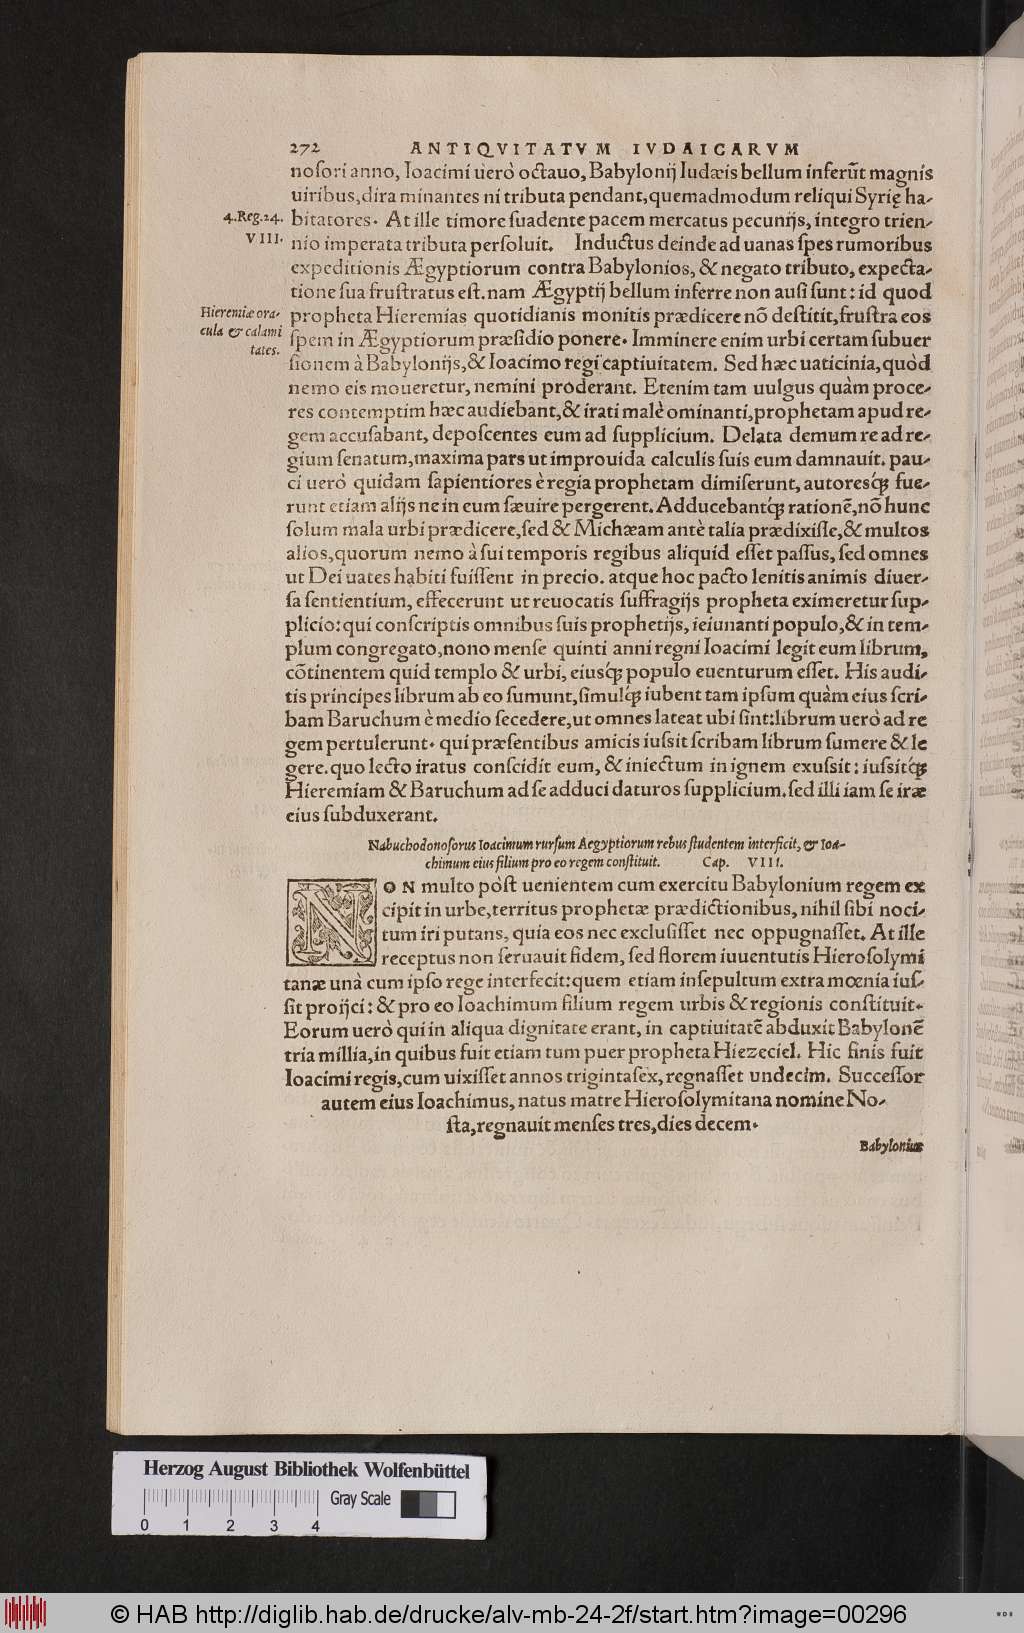 272 ANTIQVITATVM IVDAICARVM
noſori anno, Ioacimi uerò octauo, Babylonij Iudæis bellum inferũt magnis
uiribus, dira minantes ni tributa pendant, quemadmodum reliqui Syrię ha-
4. Reg. 24.
bitatores. At ille timore ſuadente pacem mercatus pecunijs, integro trien-
VIII.
nio imperata tributa perſoluit. Inductus deinde ad uanas ſpes rumoribus
expeditionis Ægyptiorum contra Babylonios, & negato tributo, expecta-
tione ſua fruſtratus eſt. nam Ægyptij bellum inferre non auſi ſunt: id quod
Hieremiæ ora-
cula & calami
tates.
propheta Hieremias quotidianis monitis prædicere nõ deſtitit, fruſtra eos
ſpem in Ægyptiorum præſidio ponere. Imminere enim urbi certam ſubuer
ſionem à Babylonijs, & Ioacimo regi captiuitatem. Sed hæc uaticinia, quòd
nemo eis moueretur, nemini proderant. Etenim tam uulgus quàm proce-
res contemptim hæc audiebant, & irati malè ominanti, prophetam apud re-
gem accuſabant, depoſcentes eum ad ſupplicium. Delata demum re ad re-
gium ſenatum, maxima pars ut improuida calculis ſuis eum damnauit. pau-
ci uerò quidam ſapientiores è regia prophetam dimiſerunt, autoresq́ꝫ fue-
runt etiam alijs ne in eum ſæuire pergerent. Adducebantq́ꝫ rationẽ, nõ hunc
ſolum mala urbi prædicere, ſed & Michæam antè talia prædixiſſe, & multos
alios, quorum nemo à ſui temporis regibus aliquid eſſet paſſus, ſed omnes
ut Dei uates habiti fuiſſent in precio. atque hoc pacto lenitis animis diuer-
ſa ſentientium, effecerunt ut reuocatis ſuffragijs propheta eximeretur ſup-
plicio: qui conſcriptis omnibus ſuis prophetijs, ieiunanti populo, & in tem-
plum congregato, nono menſe quinti anni regni Ioacimi legit eum librum,
cõtinentem quid templo & urbi, eiusq́ꝫ populo euenturum eſſet. His audi-
tis principes librum ab eo ſumunt, ſimulq́ꝫ iubent tam ipſum quàm eius ſcri-
bam Baruchum è medio ſecedere, ut omnes lateat ubi ſint: librum uerò ad re
gem pertulerunt. qui præſentibus amicis iuſsit ſcribam librum ſumere & le
gere. quo lecto iratus conſcidit eum, & iniectum in ignem exuſsit: iuſsitq́ꝫ
Hieremiam & Baruchum ad ſe adduci daturos ſupplicium. ſed illi iam ſe iræ
eius ſubduxerant.
Nabuchodonoſorus Ioacimum rurſum Aegyptiorum rebus ſtudentem interficit, & Ioa-
chimum eius filium pro eo regem conſtituit. Cap. VIII.
NON multo pòſt uenientem cum exercitu Babylonium regem ex
cipit in urbe, territus prophetæ prædictionibus, nihil ſibi noci-
tum iri putans, quia eos nec excluſiſſet nec oppugnaſſet. At ille
receptus non ſeruauit fidem, ſed florem iuuentutis Hieroſolymi
tanæ unà cum ipſo rege interfecit: quem etiam inſepultum extra mœnia iuſ-
ſit proijci: & pro eo Ioachimum filium regem urbis & regionis conſtituit.
Eorum uerò qui in aliqua dignitate erant, in captiuitatẽ abduxit Babylonẽ
tria millia, in quibus fuit etiam tum puer propheta Hiezeciel. Hic finis fuit
Ioacimi regis, cum uixiſſet annos trigintaſex, regnaſſet undecim. Succeſſor
autem eius Ioachimus, natus matre Hieroſolymitana nomine No-
ſta, regnauit menſes tres, dies decem.
Babylonius
Herzog August Bibliothek Wolfenbüttel
Gray Scale
0 1 2 3 4
© HAB http://diglib.hab.de/drucke/alv-mb-24-2f/start.htm?image=00296